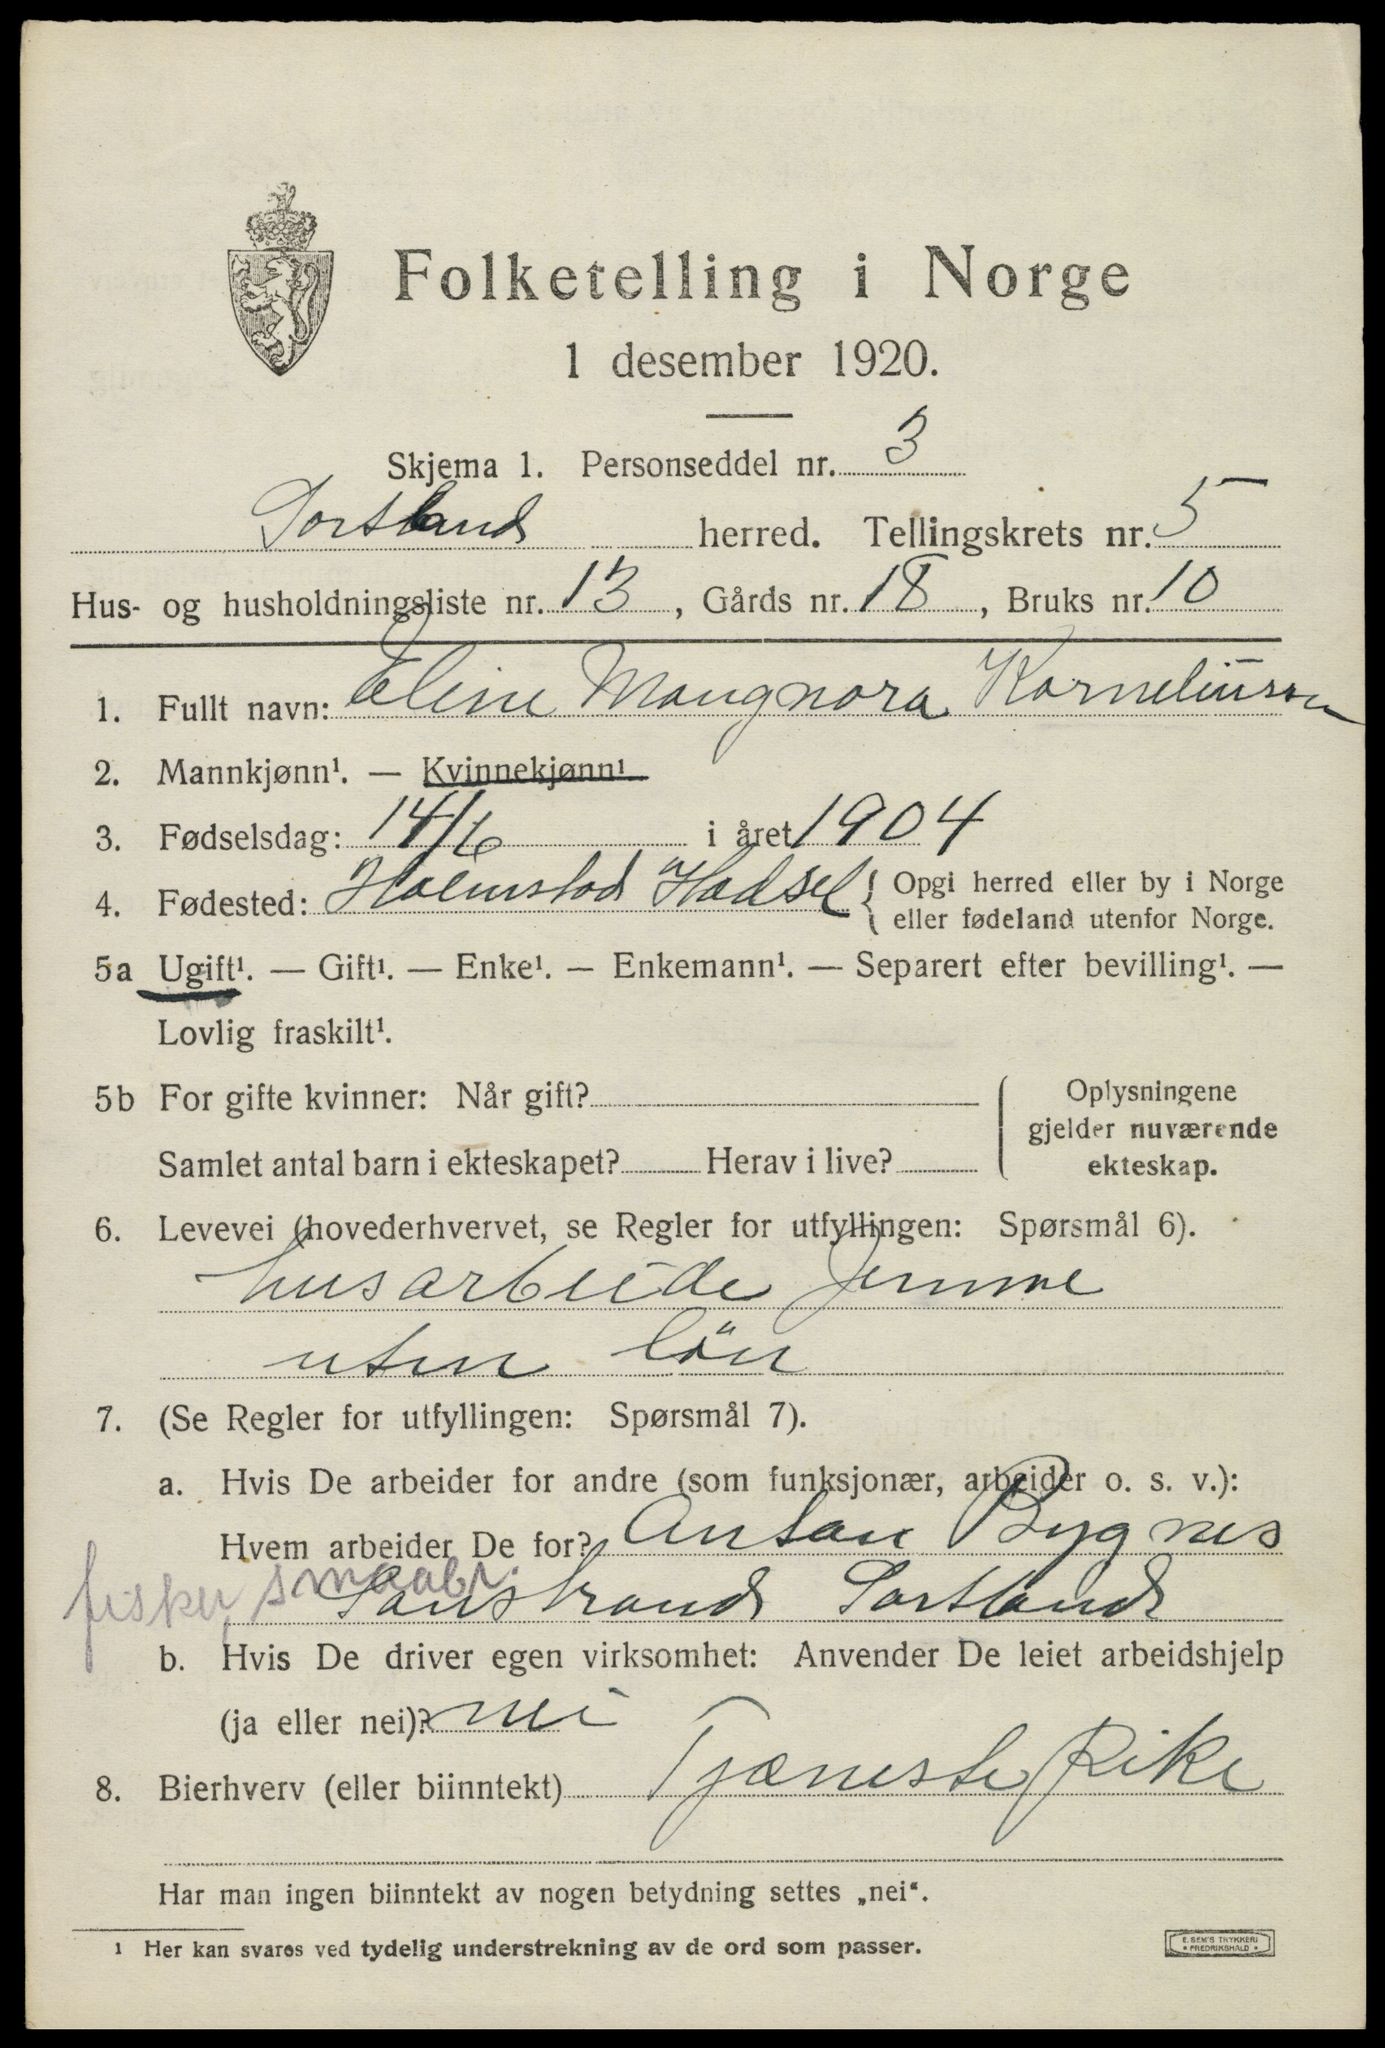 Folketelling i Norge
1 desember 1920.
Skjema 1. Personseddel nr. 3
Sortland herred. Tellingskrets nr. 5
Hus- og husholdningsliste nr. 13, Gårds nr. 18, Bruks nr. 10
1. Fullt navn: Eline Mangnora Korneliussen
2. Mannkjønn¹. — Kvinnekjønn¹
3. Fødselsdag: 14/6 i året 1904
4. Fødested: Holmstad Hadsel { Opgi herred eller by i Norge
eller fødeland utenfor Norge.
5a Ugift¹. — Gift¹. — Enke¹. — Enkemann¹. — Separert efter bevilling¹. —
Lovlig fraskilt¹.
5b For gifte kvinner: Når gift?
Samlet antal barn i ekteskapet? Herav i live?
Oplysningene
gjelder nuværende
ekteskap.
6. Levevei (hovederhvervet, se Regler for utfyllingen: Spørsmål 6).
husarbeide jemme
uten lön
7. (Se Regler for utfyllingen: Spørsmål 7).
a. Hvis De arbeider for andre (som funksjonær, arbeider o. s. v.):
Hvem arbeider De for? Anton Bygnes
fisker, smaabr.
Sortland
b. Hvis De driver egen virksomhet: Anvender De leiet arbeidshjelp
(ja eller nei)? nei
8. Bierhverv (eller biinntekt) Tjæneste Pike
Har man ingen biinntekt av nogen betydning settes „nei“.
¹ Her kan svares ved tydelig understrekning av de ord som passer.
E. SEM'S TRYKKERI
* FREDRIKSHALD *